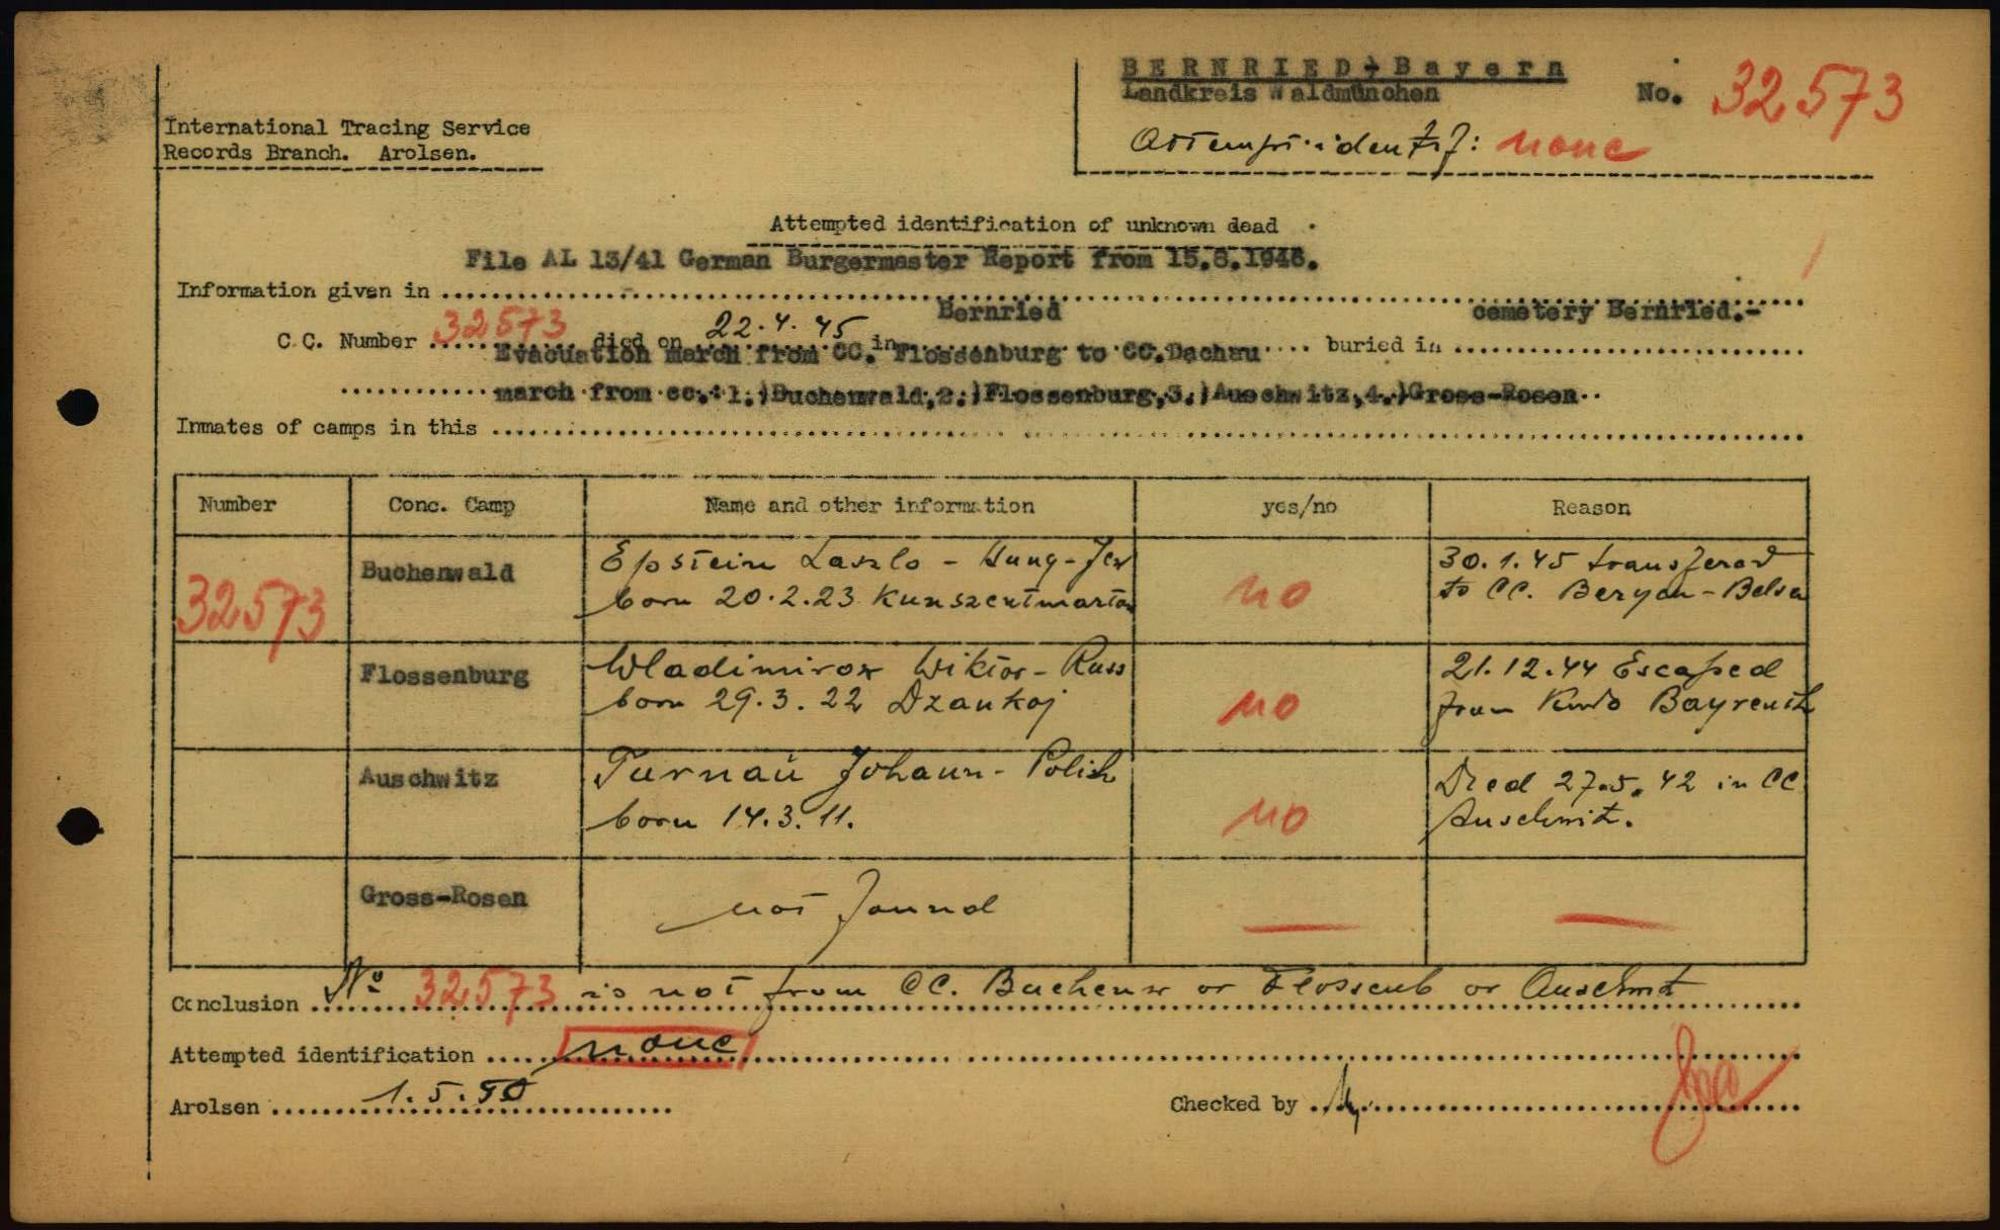 BERNRIED, Bayern
Landkreis Waldmünchen
No. 32573
International Tracing Service
Records Branch. Arolsen.
Attempt. identif: none
Attempted identification of unknown dead
File AL 13/41 German Burgermaster Report from
Information given in
Bernried cemetery Bernried.-
C.C. Number 32573 died on 22.4.45 in buried in
Evacuation march from CC. Flossenburg to CC.Dachau
march from cc. 1.)Buchenwald,2.)Flossenburg,3.)Auschwitz,4.)Gross-Rosen
Inmates of camps in this
Number Conc. Camp Name and other information yes/no Reason
32573 Buchenwald Epstein Laszlo - Hung-Jew no 30.1.45 transferred
born 20.2.23 Kunszentmarton to CC. Bergen-Belsen
Flossenburg Wladimirow Wiktor - Russ no 21.12.44 Escaped
born 29.3.22 Dzankoj from Kmdo Bayreuth
Auschwitz Turnau Johann - Polish no Died 27.5.42 in CC
born 14.3.11. Auschwitz.
Gross-Rosen not found
Conclusion No 32573 is not from CC. Buchenw or Flossenb or Auschwitz
Attempted identification none
Arolsen 1.5.50 Checked by